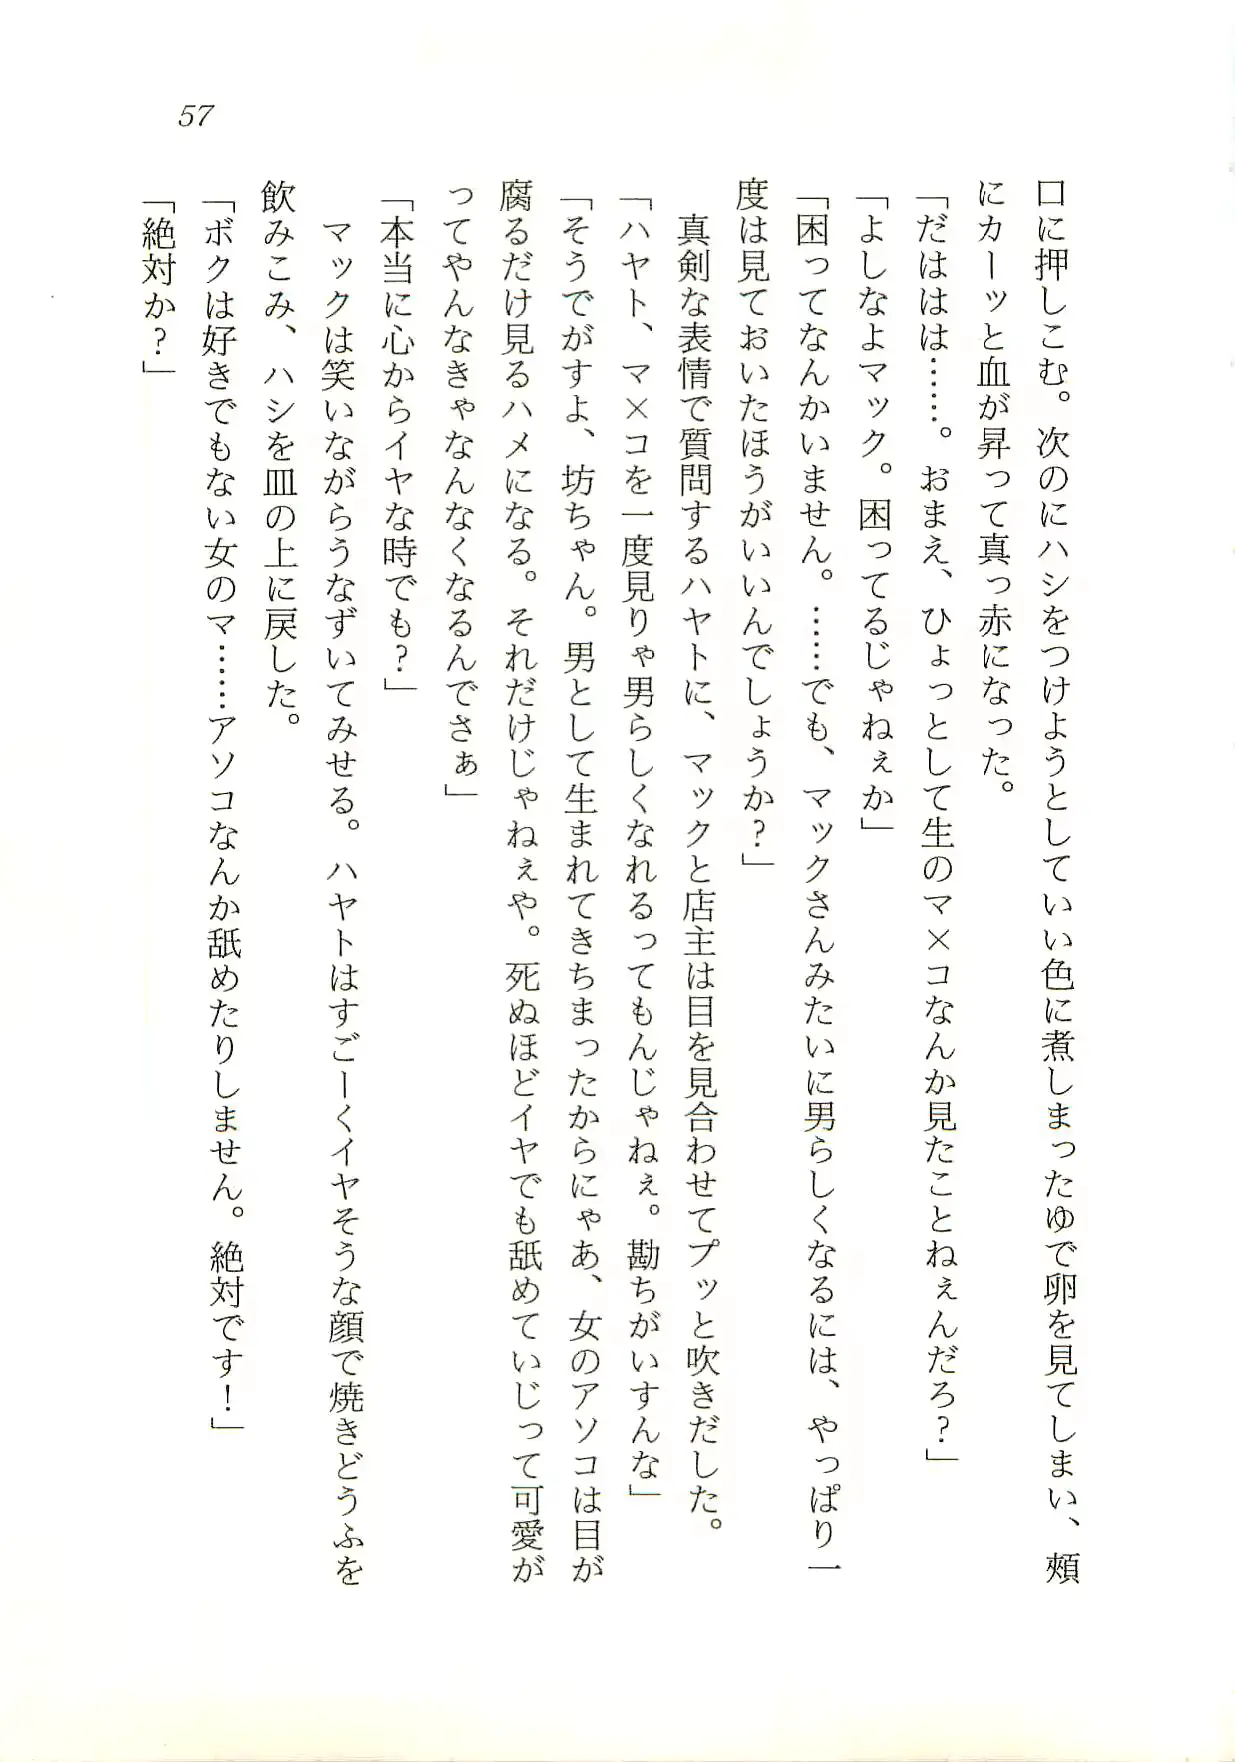 57
口に押しこむ。次のにハシをつけようとしていい色に煮しまったゆで卵を見てしまい、頰
にカーッと血が昇って真っ赤になった。
「だははは……。おまえ、ひょっとして生のマ×コなんか見たことねぇんだろ？」
「よしなよマック。困ってるじゃねぇか」
「困ってなんかいません。……でも、マックさんみたいに男らしくなるには、やっぱり一
度は見ておいたほうがいいんでしょうか？」
真剣な表情で質問するハヤトに、マックと店主は目を見合わせてプッと吹きだした。
「ハヤト、マ×コを一度見りゃ男らしくなれるってもんじゃねぇ。勘ちがいすんな」
「そうでがすよ、坊ちゃん。男として生まれてきちまったからにゃあ、女のアソコは目が
腐るだけ見るハメになる。それだけじゃねぇや。死ぬほどイヤでも舐めていじって可愛が
ってやんなきゃなんなくなるんでさぁ」
「本当に心からイヤな時でも？」
マックは笑いながらうなずいてみせる。ハヤトはすごーくイヤそうな顔で焼きどうふを
飲みこみ、ハシを皿の上に戻した。
「ボクは好きでもない女のマ……アソコなんか舐めたりしません。絶対です！」
「絶対か？」